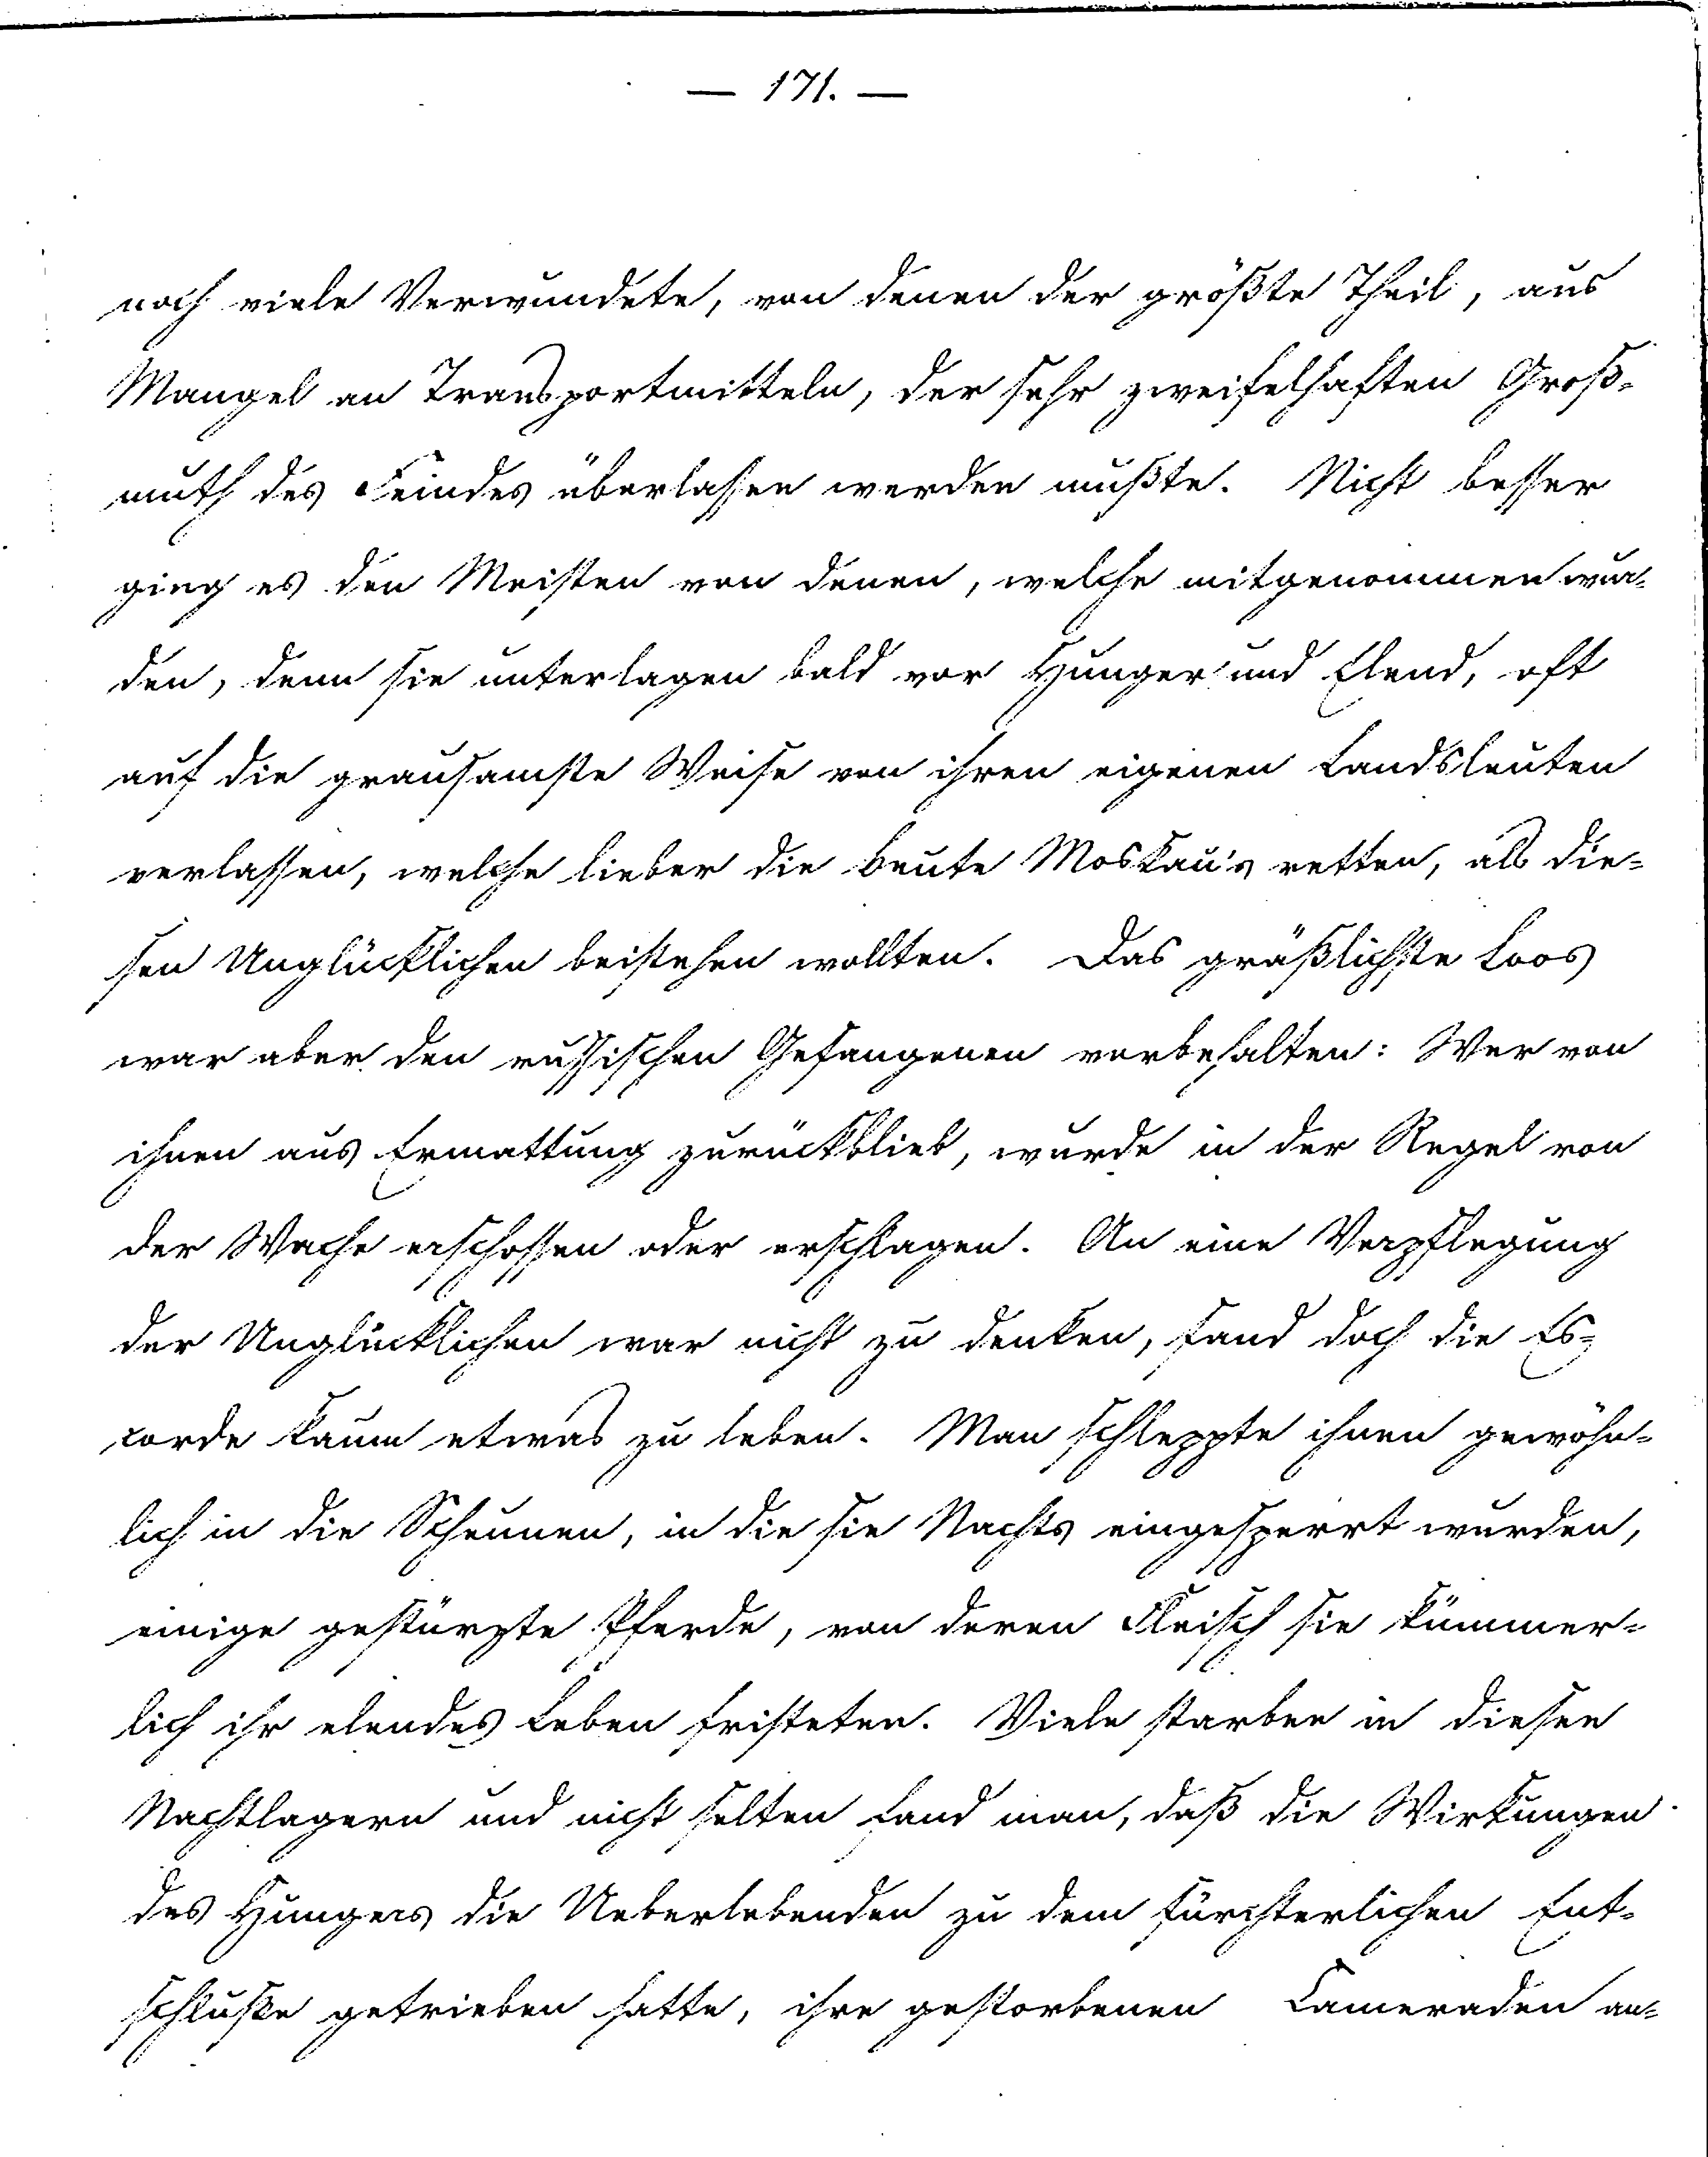 — 171. —
noch viele Verwundete, von denen der größte Theil, aus
Mangel an Transportmitteln, der sehr zweifelhaften Groß-
muth des Feindes überlassen werden mußte. Nicht besser
ging es den Meisten von denen, welche mitgenommen wur-
den, denn sie unterlagen bald vor Hunger und Elend, oft
auf die grausamste Weise von ihren eigenen Landsleuten
verlassen, welche lieber die Beute Moskau's retten, als die-
sen Unglücklichen beistehen wollten. Das gräßlichste Loos
war aber den russischen Gefangenen vorbehalten: Wer von
ihnen aus Ermattung zurückblieb, wurde in der Regel von
der Wache erschossen oder erschlagen. An eine Verpflegung
der Unglücklichen war nicht zu denken, fand doch die Es-
corde kaum etwas zu leben. Man schleppte ihnen gewöhn-
lich in die Scheunen, in die sie Nachts eingesperrt wurden,
einige gestürzte Pferde, von deren Fleisch sie kümmer-
lich ihr elendes Leben fristeten. Viele starben in diesen
Nachtlagern und nicht selten fand man, daß die Wirkungen
des Hungers die Ueberlebenden zu dem fürchterlichen Ent-
schluße getrieben hatte, ihre gestorbenen Cameraden an-